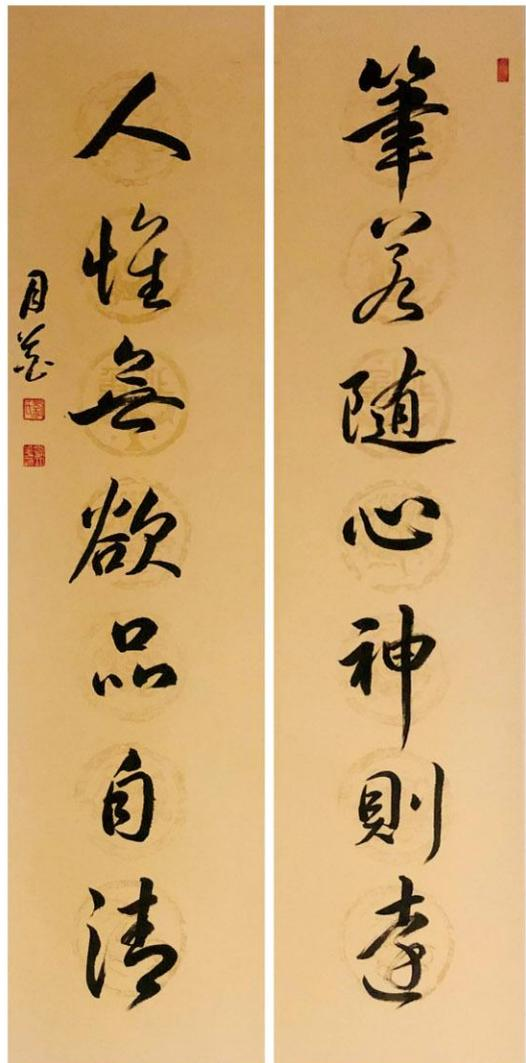 筆若随心神則達
人惟無欲品自清
月